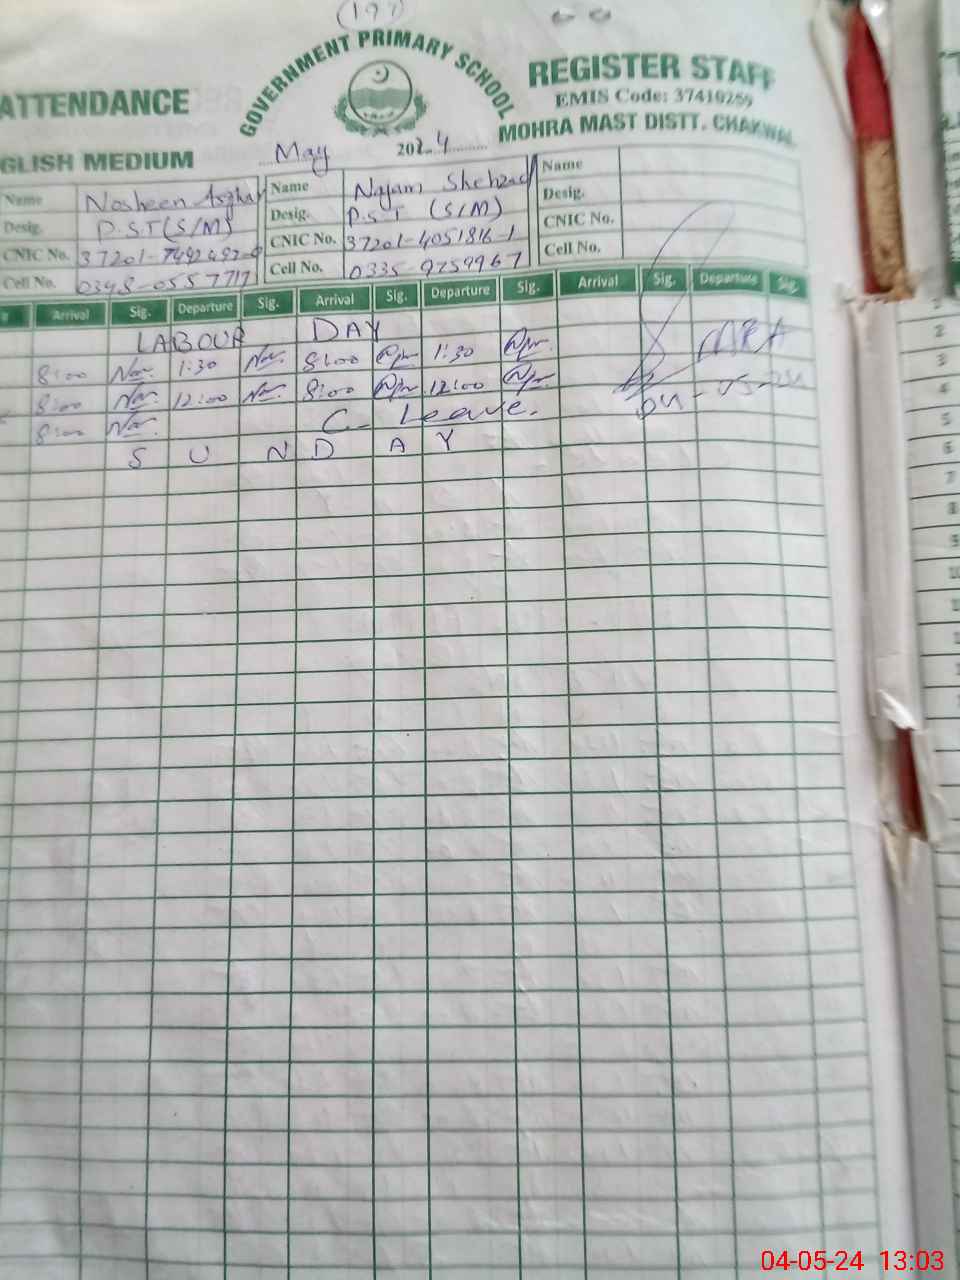 (197)
GOVERNMENT PRIMARY SCHOOL
ATTENDANCE REGISTER STAFF
EMIS Code: 37410259
GLISH MEDIUM May 2024 MOHRA MAST DISTT. CHAKWAL
Name Nosheen Asghar Name Najam Shehzad Name
Desig. P.S.T (S/M) Desig. P.S.T (S/M) Desig.
CNIC No. CNIC No. 37201-4051816-1 CNIC No.
Cell No. 0348-0557717 Cell No. 0335-9759967 Cell No.
Arrival Sig. Departure Sig. Arrival Sig. Departure Sig. Arrival Sig. Departure Sig.
LABOUR DAY
8:00 1:30 8:00 1:30 MEA
8:00 12:00 8:00 12:00 04-05-24
8:00 C- Leave.
S U N D A Y
2
3
4
5
6
7
8
9
10
04-05-24 13:03